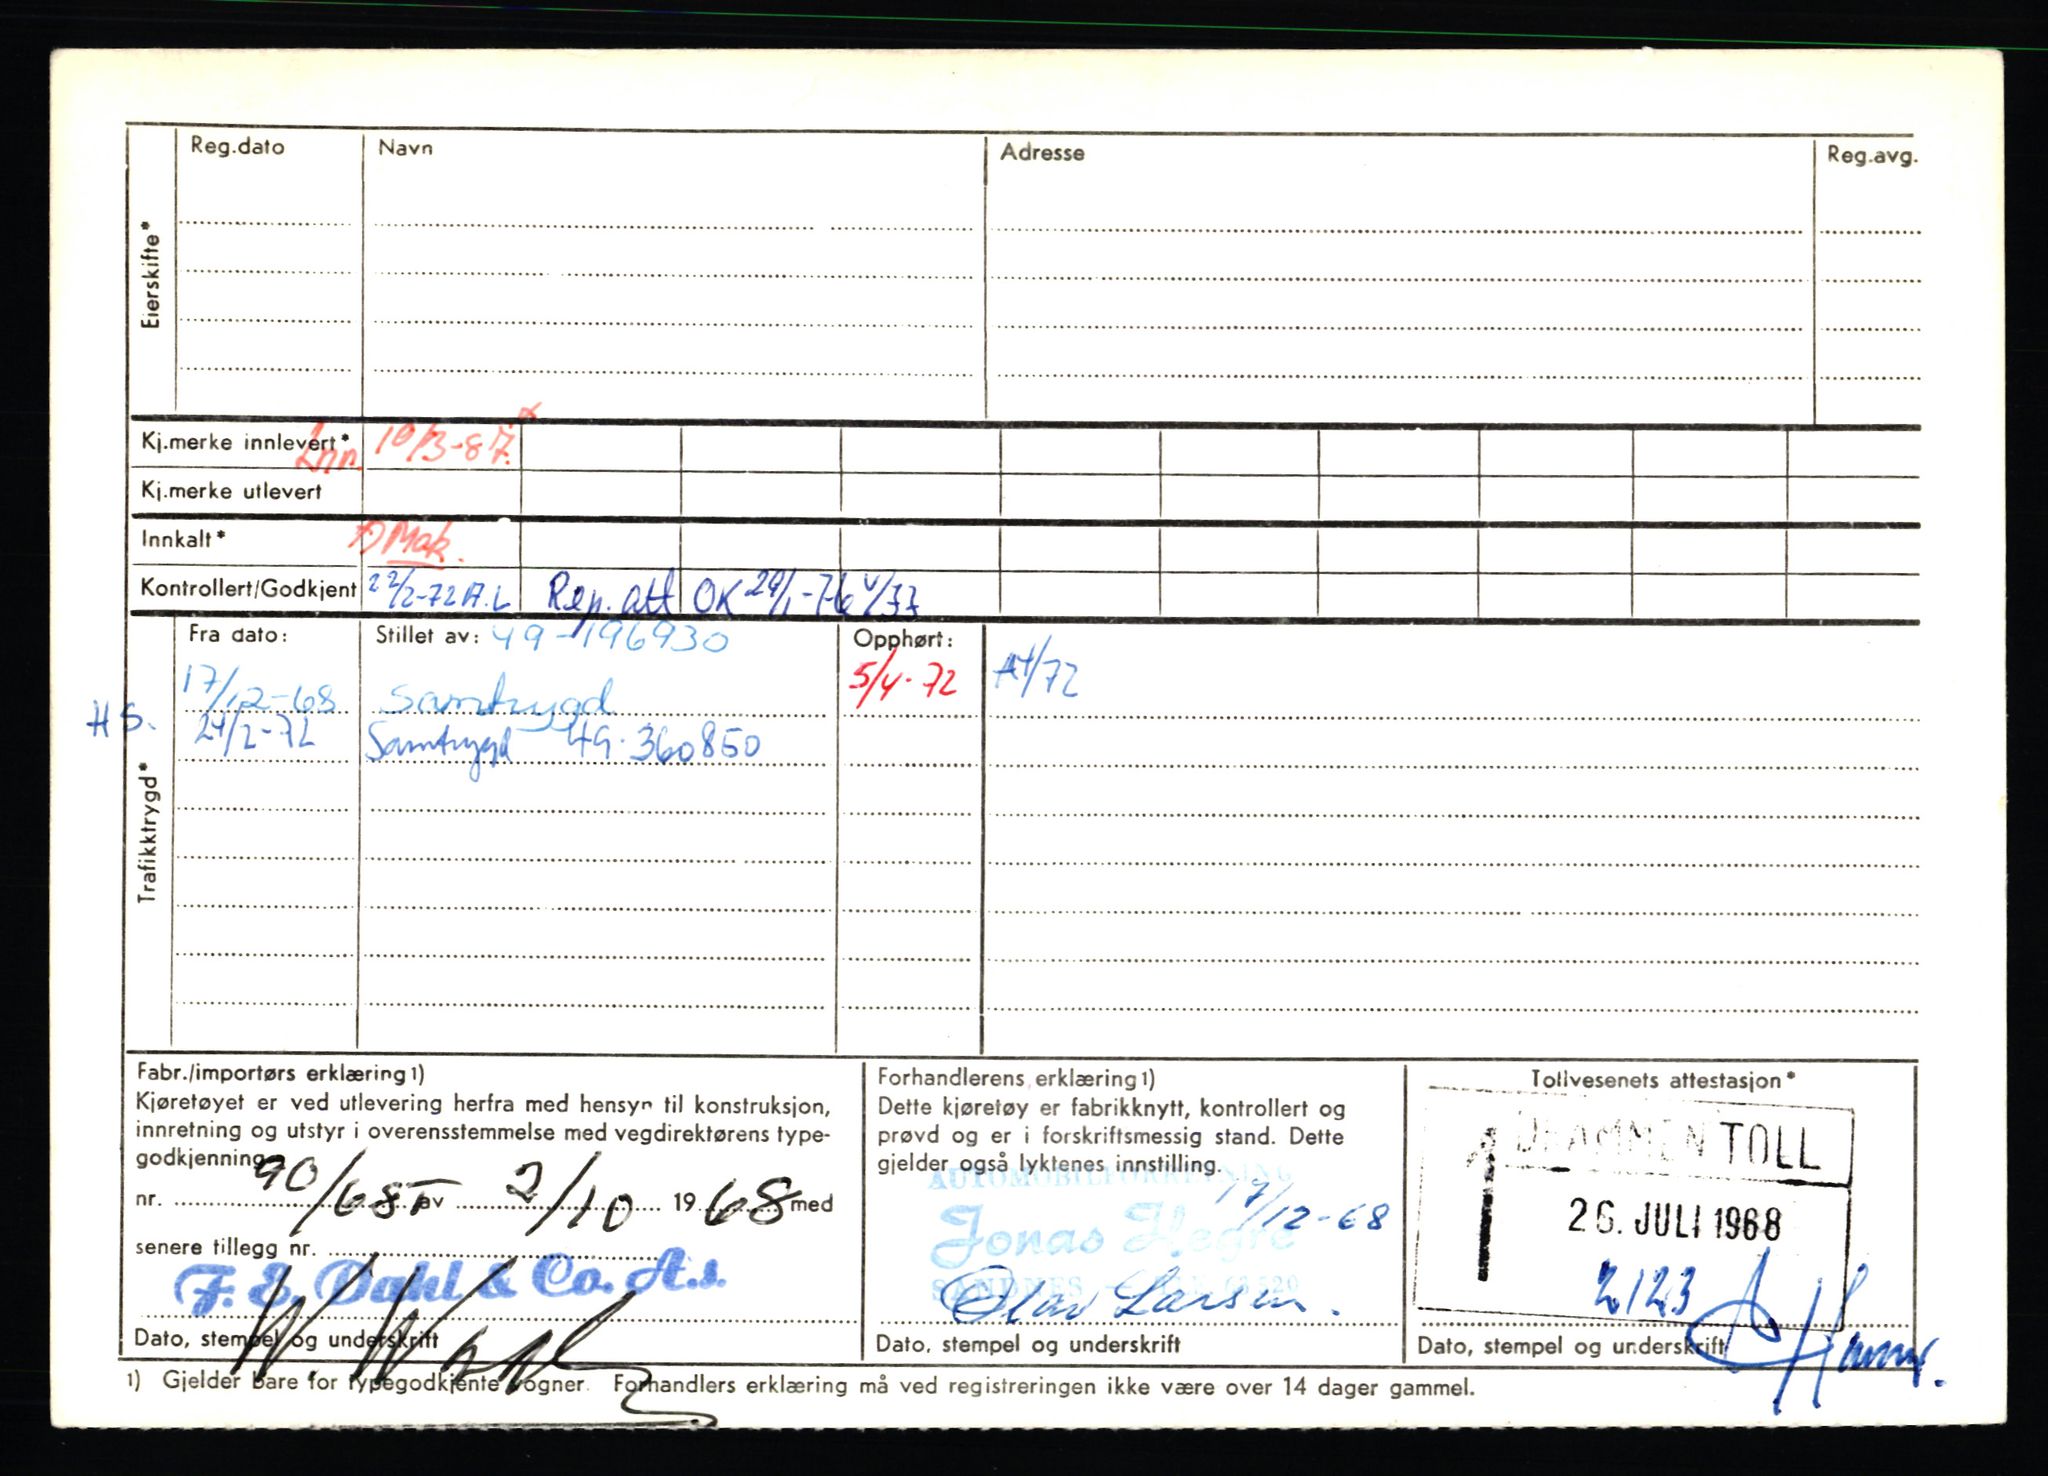 Eierskifte*
Reg.dato Navn Adresse Reg.avg.
Kj.merke innlevert* Inn. 10/3-87.
Kj.merke utlevert
Innkalt* Mak.
Kontrollert/Godkjent 22/2-72 A.L Rep. att OK 29/1-76
Trafikktrygd*
Fra dato: Stillet av: 49-196930 Opphørt:
17/12-68 Samtrygd 5/4-72 /72
H S. 24/2-72 Samtrygd 49-360850
Fabr./importørs erklæring1)
Kjøretøyet er ved utlevering herfra med hensyn til konstruksjon,
innretning og utstyr i overensstemmelse med vegdirektørens type-
godkjenning
nr. 90/68T av 2/10 1968 med
senere tillegg nr.
F. E. Dahl & Co. A.s.
Dato, stempel og underskrift
Forhandlerens erklæring1)
Dette kjøretøy er fabrikknytt, kontrollert og
prøvd og er i forskriftsmessig stand. Dette
gjelder også lyktenes innstilling.
AUTOMOBILFORRETNING
17/12-68
Jonas Hegre
SANDNES
Olav Larsen.
Dato, stempel og underskrift
Tollvesenets attestasjon*
DRAMMEN TOLL
26. JULI 1968
2123
Dato, stempel og underskrift
1) Gjelder bare for typegodkjente vogner. Forhandlers erklæring må ved registreringen ikke være over 14 dager gammel.